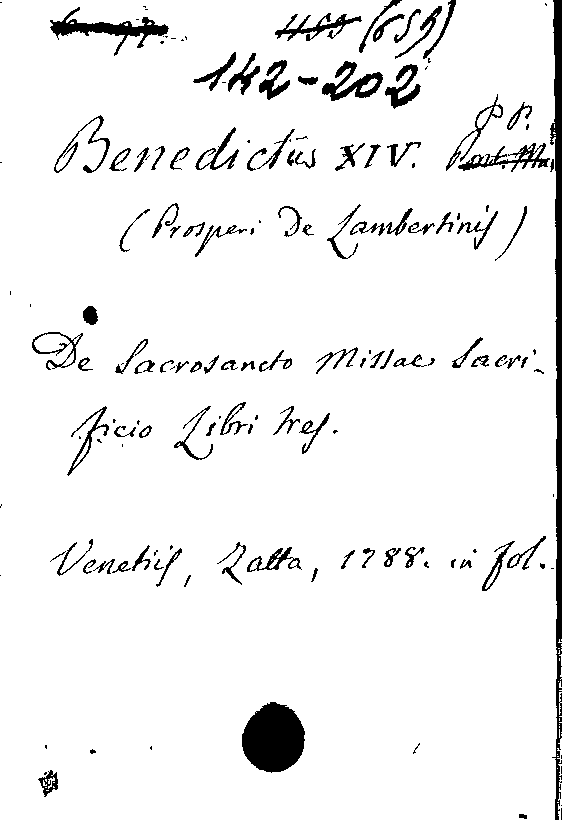 (659)
142-202
P P.
Benedictus XIV.
(Prosperi De Lambertinis)
De Sacrosancto Missae Sacri-
ficio Libri tres.
Venetiis, Zatta, 1788. in fol.